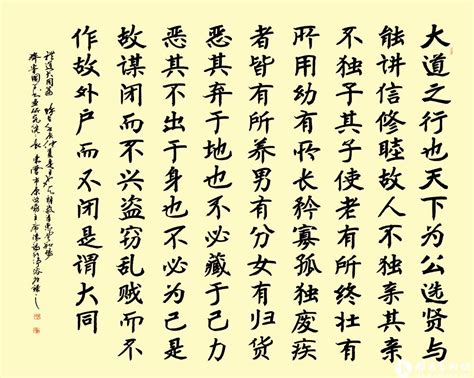 大道之行也天下为公选贤与
能讲信修睦故人不独亲其亲
不独子其子使老有所终壮有
所用幼有所长矜寡孤独废疾
者皆有所养男有分女有归货
恶其弃于地也不必藏于己力
恶其不出于身也不必为己是
故谋闭而不兴盗窃乱贼而不
作故外户而不闭是谓大同